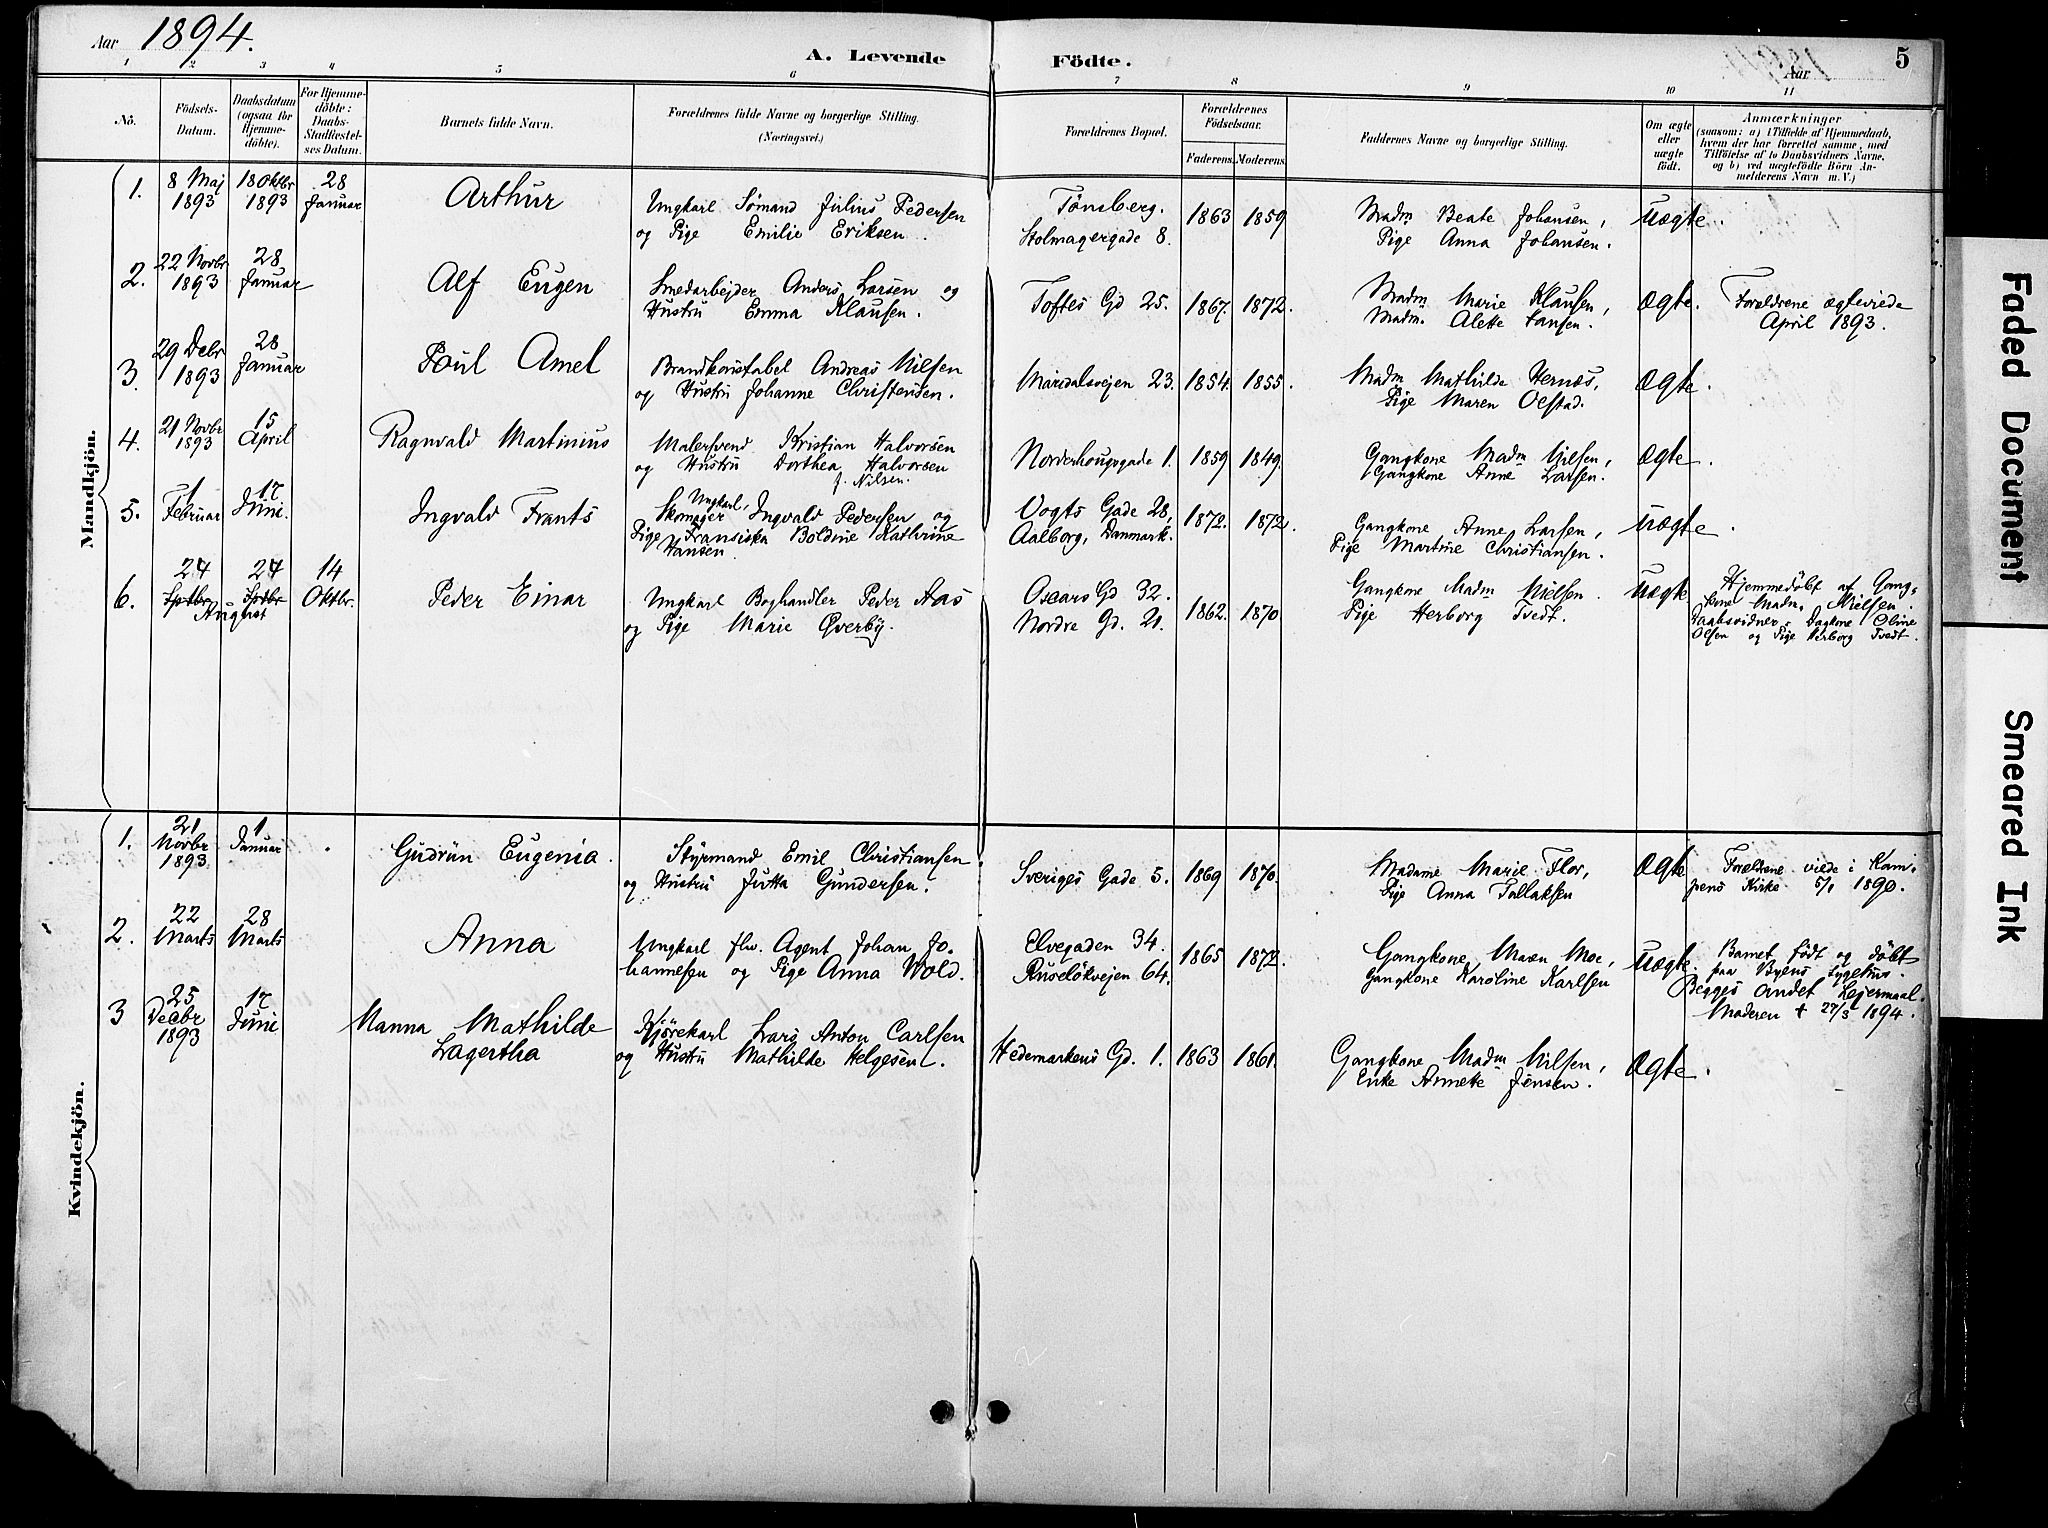 Aar 1894.
A. Levende Födte.
Aar
5
1 2 3 4 5 6 7 8 9 10 11
No.
Födsels-Datum.
Daabsdatum (ogsaa for Hjemme-döbte).
For Hjemme-döbte: Daabs-Stadfæstel-ses Datum.
Barnets fulde Navn.
Forældrenes fulde Navne og borgerlige Stilling. (Næringsvei.)
Forældrenes Bopæl.
Forældrenes Födselsaar.
Faderens. Moderens.
Faddernes Navne og borgerlige Stilling.
Om ægte eller uægte födt.
Anmærkninger
(saasom: a) i Tilfælde af Hjemmedaab,
hvem der har forrettet samme, med
Tilföielse af to Daabsvidners Navne,
og b) ved uægtefödte Börn An-
melderens Navn m. V.)
Mandkjön.
1. 8 Maj 1893 18 Oktbr 1893 28 Januar Arthur Ungkarl Sömand Julius Pedersen og Pige Emilie Eriksen. Tönsberg. Stolmagergade 8. 1863 1859 Madm Beate Johansen, Pige Anna Johansen. uægte.
2. 22 Novbr 1893 28 Januar Alf Eugen Smedarbejder Anders Larsen og Hustru Emma Klausen. Toftes Gd 25. 1867. 1872. Madm Marie Klausen, Madm. Alette Hansen. ægte. Forældrene ægteviede April 1893.
3. 29 Debr 1893 28 Januar Poul Amel Brandkonstabel Andreas Nilsen og Hustru Johanne Christensen. Maridalsvejen 23. 1854. 1855. Madm Mathilde Hernæs, Pige Maren Oestad. ægte.
4. 21 Novbr 1893 15 April Ragnvald Martinius Malersvend Kristian Halvorsen og Hustru Dorthea Halvorsen f. Nilsen. Norderhougsgade 1. 1859 1849. Gangkone Madm Nilsen, Gangkone Anne Larsen. ægte.
5. 1 Februar 17 Juni. Ingvald Frants Ungkarl, Skomager Ingvald Pedersen og Pige Fransiska Boldine Kathrine Hansen. Vogts Gade 28, Aalborg, Danmark. 1872. 1872. Gangkone Anne Larsen, Pige Martine Christiansen. uægte.
6. 24 Sptbr August 24 Sptbr 14 Oktbr. Peder Einar Ungkarl Boghandler Peder Aas og Pige Marie Øverby. Oscars Gd 32. Nordre Gd. 21. 1862. 1870 Gangkone Madm Nielsen. Pige Herborg Tvedt. uægte Hjemmedöbt af Gang-
kone Madm. Nielsen.
Daabsvidner Dagkone Oline
Olsen og Pige Herborg Tvedt.
Kvindekjön.
1. 21 Novbr 1893 1 Januar Gudrun Eugenia. Styrmand Emil Christiansen og Hustru Jutta Gundersen. Sveriges Gade 5. 1869 1870. Madame Marie Flor, Pige Anna Tallaksen ægte Forældrene viede i Kam-
pens Kirke 5/1 1890.
2. 22 Marts 28 Marts Anna Ungkarl fhv. Agent Johan Jo-
hannesen og Pige Anna Wold. Elvegaden 34. Ruselökvejen 64. 1865 1872. Gangkone Maen Moe, Gangkone Karoline Karlsen uægte. Barnet født og døbt
paa Byens Sygehus.
Begges andet Lejermaal.
Moderen † 27/3 1894.
3 25 Decbr 1893 17 Juni Nanna Mathilde Lagertha Kjörekarl Lars Anton Carlsen og Hustru Mathilde Helgesen. Hedemarkens Gd. 1. 1863 1861. Gangkone Madm Nilsen, Enke Annette Jensen. ægte.
Faded Document
Smeared Ink